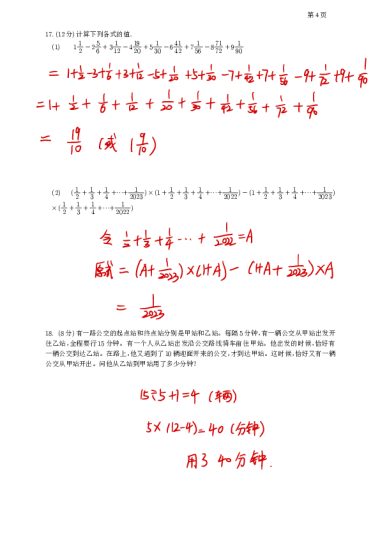 第 4 页
17. (12 分) 计算下列各式的值.
(1) 1 1/2 − 2 5/6 + 3 1/12 − 4 19/20 + 5 1/30 − 6 41/42 + 7 1/56 − 8 71/72 + 9 1/90
= 1+1/2 −3+1/6 +3+1/12 −5+1/20 +5+1/30 −7+1/42 +7+1/56 −9+1/72 +9+1/90
= 1+ 1/2 + 1/6 + 1/12 + 1/20 + 1/30 + 1/42 + 1/56 + 1/72 + 1/90
= 19/10 (或 1 9/10)
(2) (1/2 + 1/3 + 1/4 + ⋯ + 1/2023) × (1 + 1/2 + 1/3 + 1/4 + ⋯ + 1/2022) − (1 + 1/2 + 1/3 + 1/4 + ⋯ + 1/2023)
× (1/2 + 1/3 + 1/4 + ⋯ + 1/2022)
令 1/2 + 1/3 + 1/4 ⋯ + 1/2022 = A
原式 = (A + 1/2023) × (1+A) − (1+A + 1/2023) × A
= 1/2023
18. (8 分) 有一路公交的起点站和终点站分别是甲站和乙站. 每隔 5 分钟, 有一辆公交从甲站出发开
往乙站, 全程要行 15 分钟. 有一个人从乙站出发沿公交路线骑车前往甲站. 他出发的时候, 恰好有
一辆公交到达乙站. 在路上, 他又遇到了 10 辆迎面开来的公交, 才到达甲站. 这时候, 恰好又有一辆
公交从甲站开出. 问他从乙站到甲站用了多少分钟?
15÷5+1=4 (辆)
5×(12-4)=40 (分钟)
用了 40 分钟.